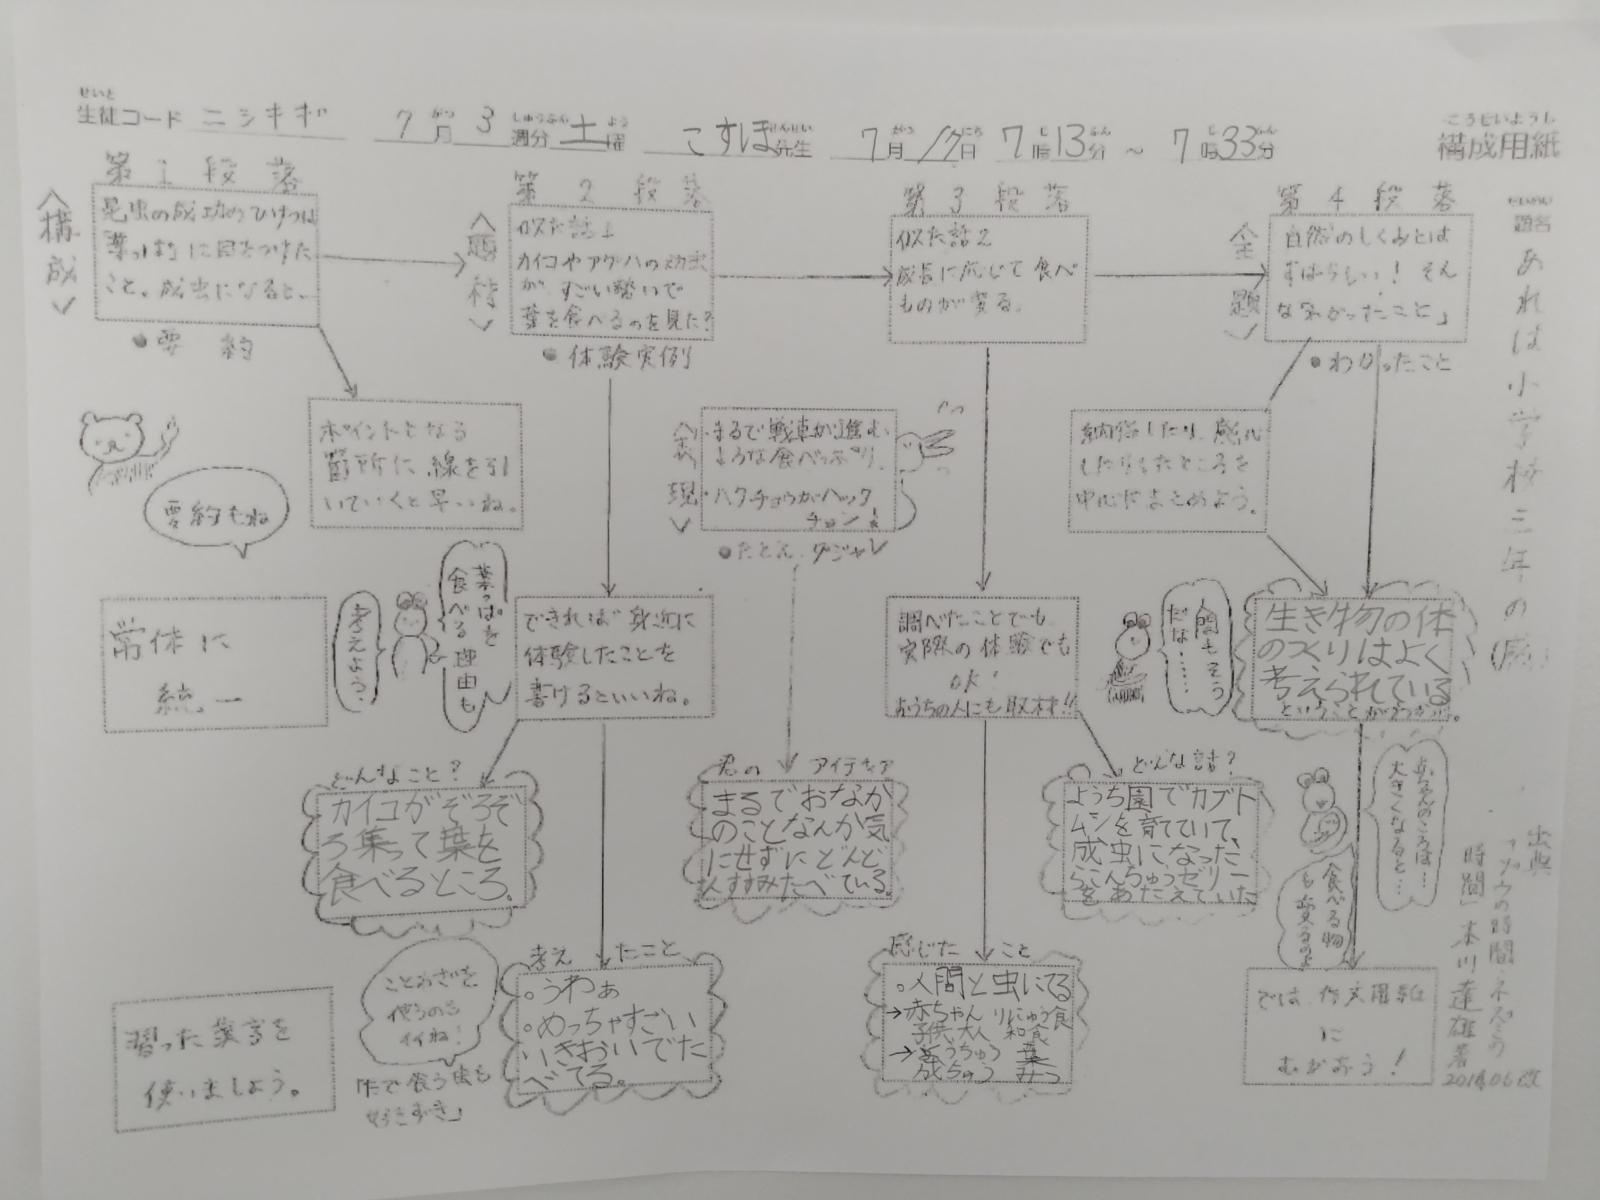 せいと
生徒コード ニシキギ 7月 3週分 土曜 こすほ先生 7月17日 7時13分 ~ 7時33分
こうせいようし
構成用紙
題名 あれは小学校三年の
<構成>
第1段落
昆虫の成功のひけつは
「葉っぱ」に目をつけた
こと。成虫になると、
●要約
ポイントとなる
箇所に線を引
いていくと早いね。
要約もね
常体に
統一
習った葉言を
使いましょう。
<題材>
第2段落
似た話1
カイコやアゲハの幼虫
が、すごい勢いで
葉を食べるのを見た?
●体験実例
できれば身近に
体験したことを
書けるといいね。
葉っぱを
食べる理由も
考えよう?
どんなこと?
カイコがぞろぞ
ろ集って葉を
食べるところ。
考えたこと
○うわぁ
○めっちゃすごい
いきおいでた
べてる。
ことわざを
使うのも
イイね!
「たで食う虫も
好きずき」
<表現>
・まるで戦車が進む
ような食べっぷり。
・ハクチョウがハック
チョン!
●たとえ ダジャレ
君のアイディア
まるでおなか
のことなんか気
にせずにどんど
んすすみたべている。
第3段落
似た話2
成長に応じて食べ
ものが変る。
調べたことでも
実際の体験でも
OK!
おうちの人にも取材!!
どんな話?
ようち園でカブト
ムシを育てていて、
成虫になった
らこんちゅうゼリー
をあたえていた
感じたこと
○人間と虫にてる
→赤ちゃん りにゅう食
子供、大人 和食
→ようちゅう 葉
成ちゅう みつ
<主題>
第4段落
自然のしくみとは
すばらしい! そん
なわかったこと」
●わかったこと
納得したり、感心
したりしたところを
中心にまとめよう。
人間もそう
だな……
生き物の体
のつくりはよく
考えられている
ということがわかった。
赤ちゃんのころは…
大きくなると…
食べる物
も変るのよ
では、作文用紙
に
むかおう!
出典
「ゾウの時間・ネズミの
時間」本川達雄著
2014.06改